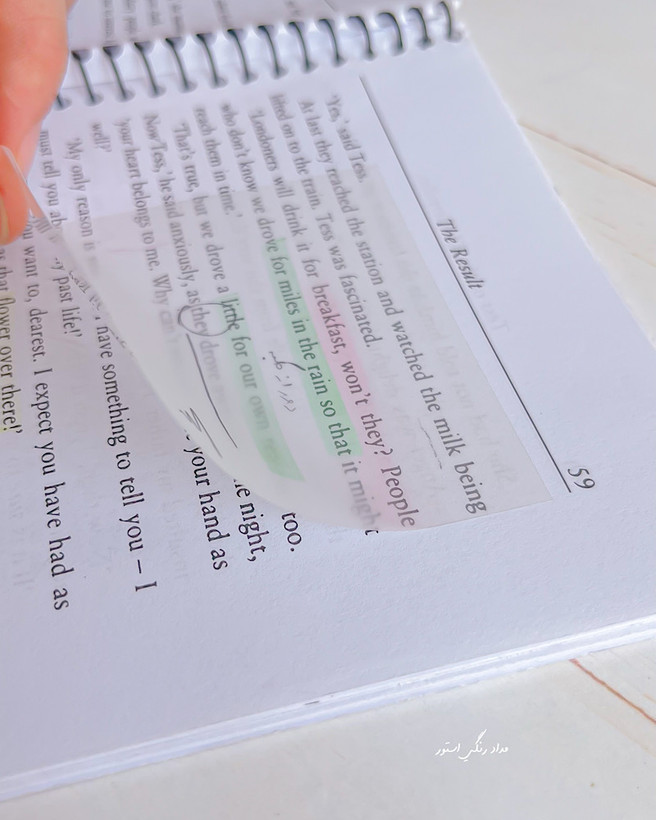 The Result
59
'Yes,' said Tess.
At last they reached the station and watched the milk being
lifted on to the train. Tess was fascinated.
'Londoners will drink it for breakfast, won't they? People
who don't know we drove for miles in the rain so that it might
reach them in time.'
'That's true, but we drove a little for our own too.
Now Tess,' he said anxiously, as they drove night,
your heart belongs to me. Why your hand as
well?'
'My only reason is have something to tell you – I
must tell you past life!'
you want to, dearest. I expect you have had as
that flower over there!'
مداد رنگی استور